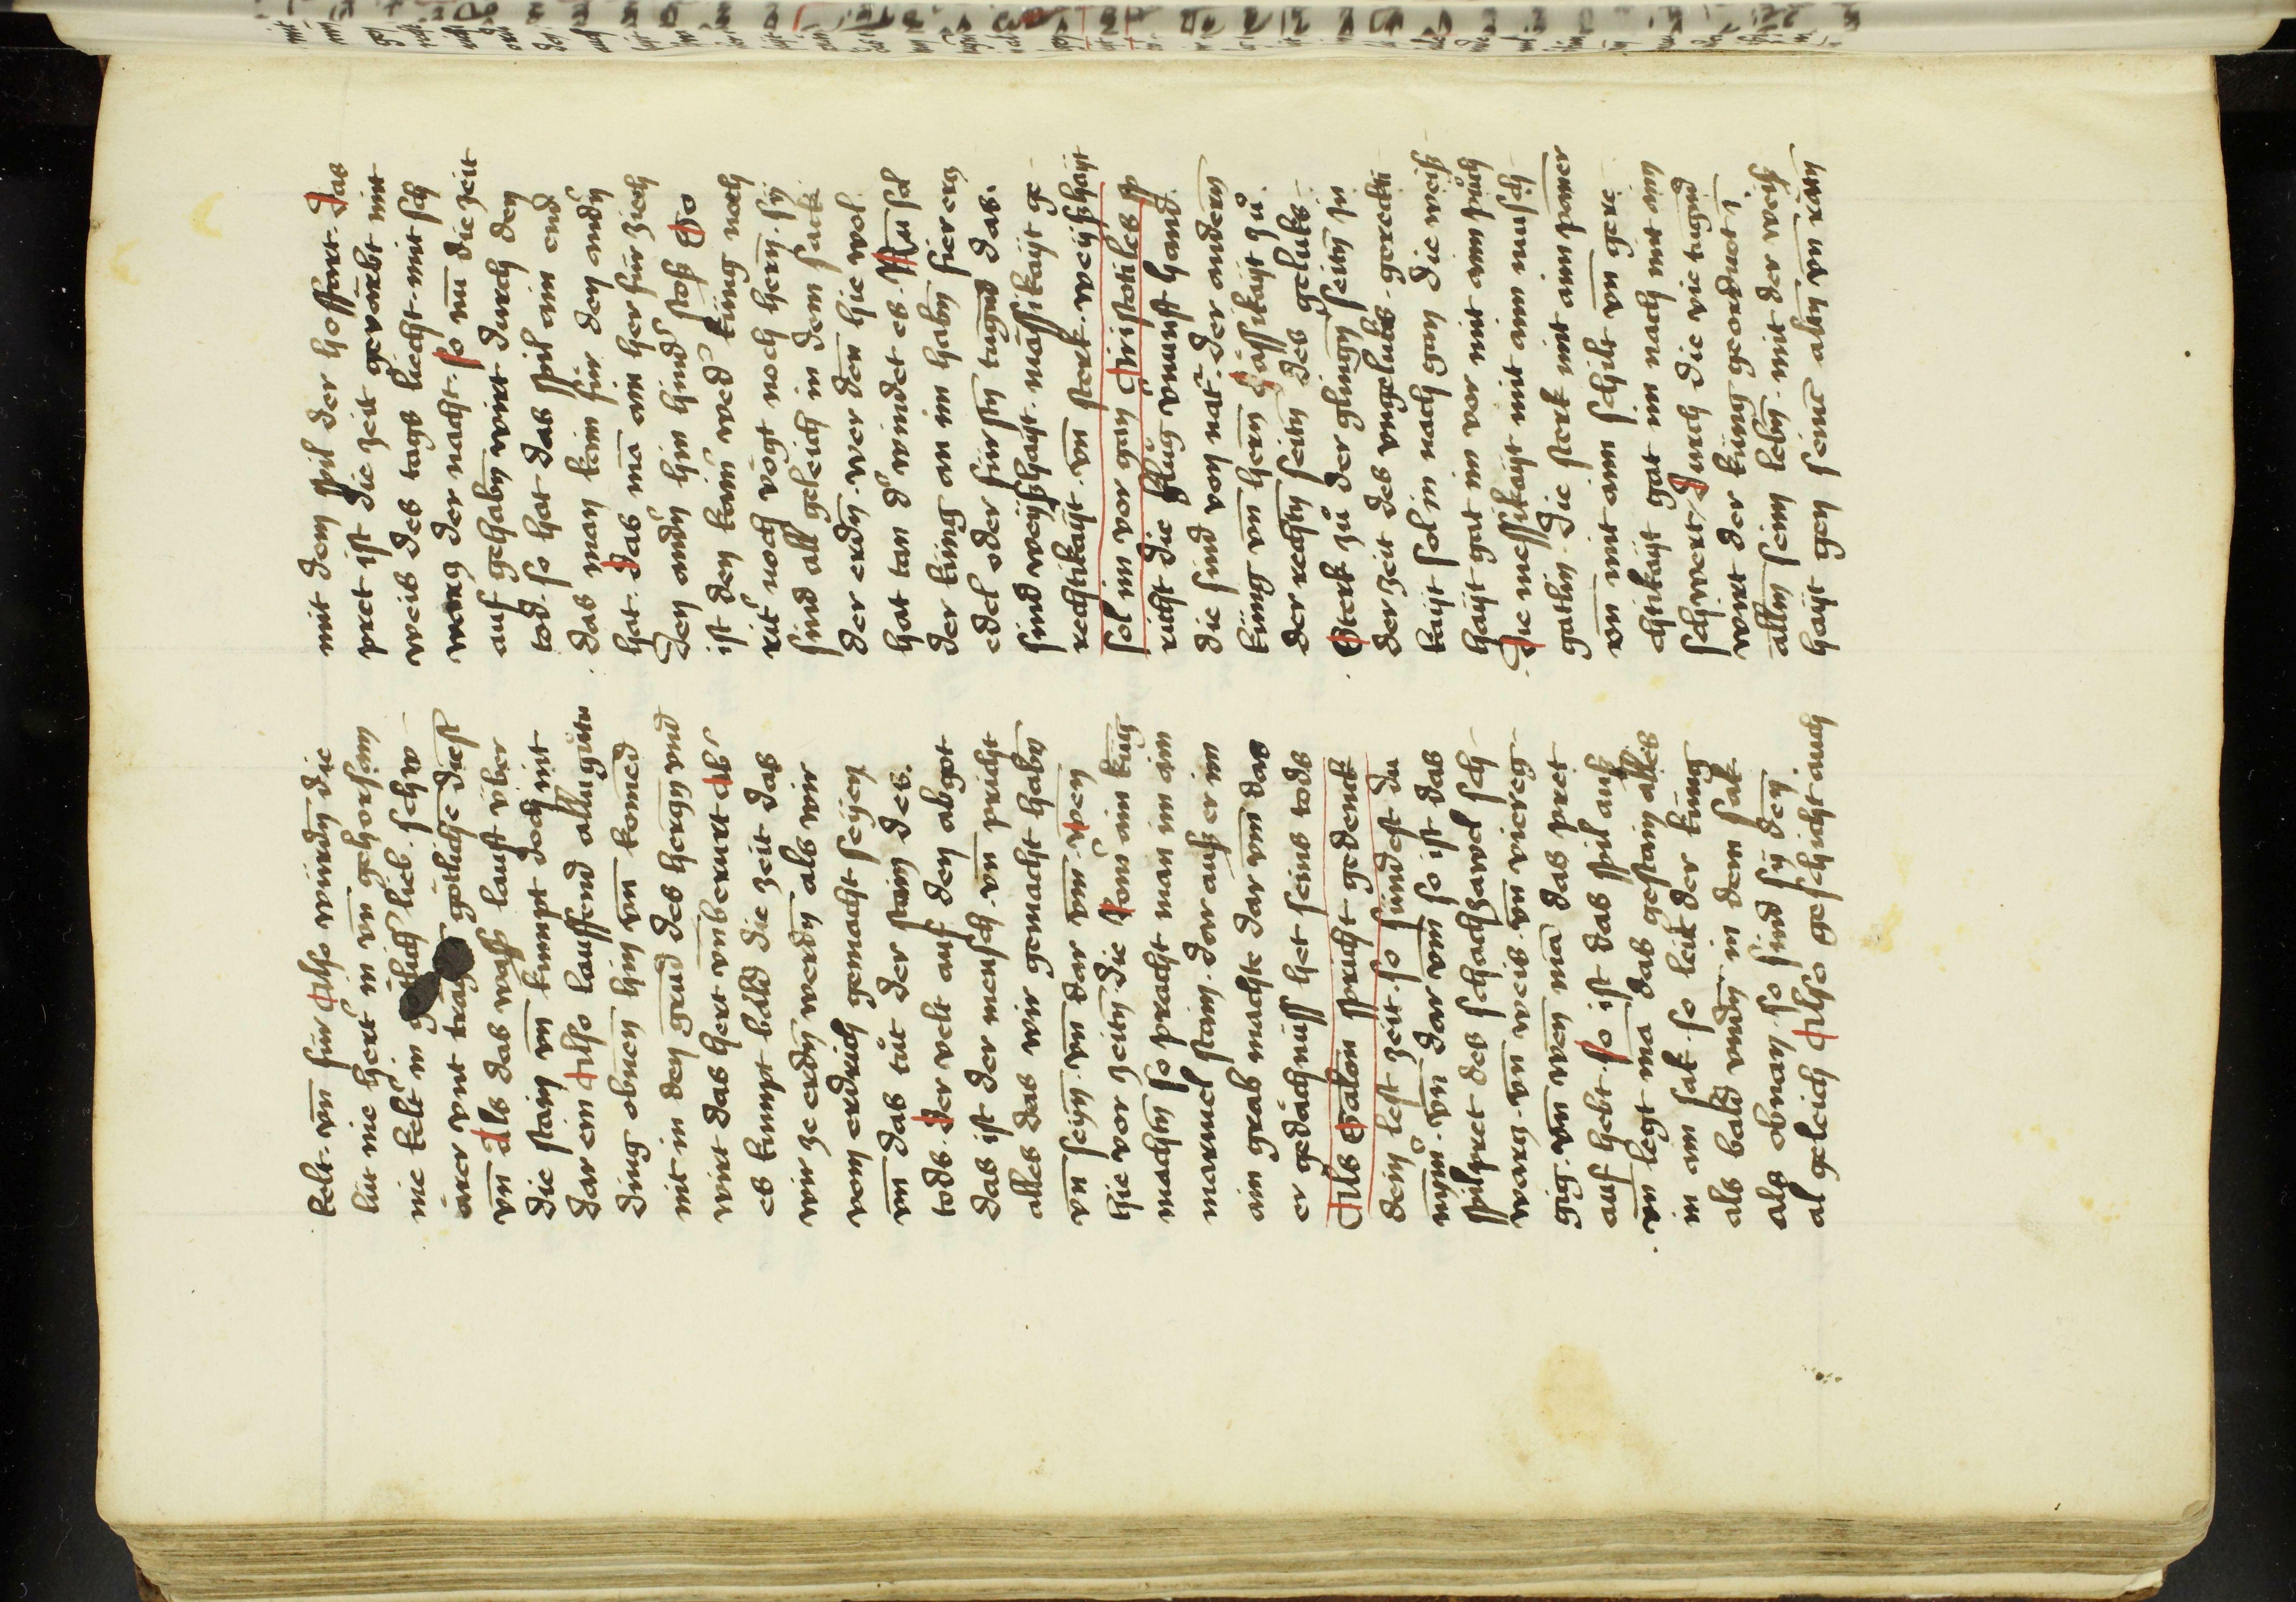 kelt · vn̄ für Also würdn̄ die
lüt nie herᷣt in vn̄ gehorsam
nie kelt in götlich lieb · schw
ärer vnt träg götliche diēst
vn̄ Als das wass laufft v̈ber
die stain vn̄ kumpt doch nit
dar ein Also lauffend allu gůtu
ding obnen hin vn̄ komēd
nit in den grūd des hergn̄ vnd
wirt das hert vnberurt Ab
es kumpt bald die zeit das
wir ze erdn̄ werdn̄ als wir
vom erdrich gemacht seyen
vn̄ das tůt der stain des ·
tods · der velt auf den abgot
das ist der mensch · vn̄ pricht
alles das wir gemacht habn̄
vn̄ seyn · vn̄ dar vm̄ · wen
hie vor zeitn̄ die Rom̄ ain küg
machtn̄ so pracht man im ain
marmel stain · dar auß er im
ain grab machte dar vm̄ das
er gedächnüss het seins tods
Als Salon̄ spricht gedenck
dein lest zeit · so sündest du
nym̄ · vn̄ dar vm̄ so ist das
spilpret des schachzawel sch
warcz · vn̄ weis · vn̄ viereg
gig · vn̄ wen mā das pret
auf hebt · so ist das spil auß
vn̄ legt mā das gestain alles
in ain sak · so leit der küng
als bald vndn̄ in dem sak
als obnan · so sind sy den
al geleich Also geschicht auch
mit dem spil der hoffart · das
pret ist die zeit geuärbt mit
weis des tags liecht · mit sch
warcz der nacht · so nū die zeit
auf gehabn̄ wirt durch den
tod · so hat das spil ain end
das man kain für den andn̄
hat · das mā ain her für zieh
den andn̄ hin hindᷣ stoß So
ist den kainᷣ wedᷣ küng noch
ritᷣ noch vogt noch hern̄ · sy
sind all geleich in dem sack
der erdn̄ · wer den̄ hie wol
hat tan dᷣ vindet es · Nu sol
der küng an im habn̄ fier ercz
edel oder fürstn̄ tugend das ·
sind weyßhayt · mässikayt ge
rechtikayt · vn̄ sterk · weyßhayt
sol im vor gan Aristotiles sp
richt die klůg v̓nunft hand
die sind von natᷣ · der andern̄
küng vn̄ hern̄ Mässikayt zů ·
der rechtn̄ seitn̄ des geluks
Sterk zů der glingn̄ seitn̄ in
der zeit des vngeluks · gerechti
kayt sol in nach gan die weiß
hayt gat im vor mit aim půch
Die messikayt mit aim musch
gatln̄ · die sterk mit aim pāner
vnd mit aim schilt vn̄ gere
chtikayt gat im nach mit aim
schwert · durch die vier tugnd
wirt der küng geordnot ī
alln̄ seim lebn̄ · mit der weiß
hayt gen seine̅ altn̄ vn̄ rätn̄